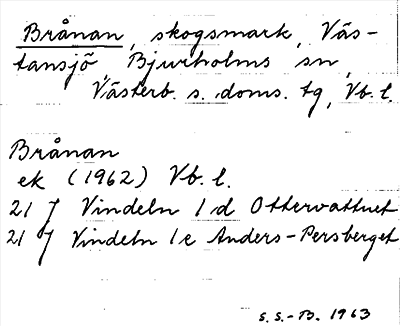 Brånan, skogsmark, Väs-
tansjö, Bjurholms sn,
Västerb. s. doms. tg, Vb. l.
Brånan
ek (1962) Vb. l.
21 J Vindeln 1 d Ottervattnet
21 J Vindeln 1 e Anders-Persberget
S. S.-B. 1963